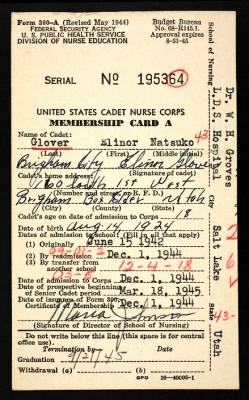 Form 300-A (Revised May 1944)
FEDERAL SECURITY AGENCY
U. S. PUBLIC HEALTH SERVICE
DIVISION OF NURSE EDUCATION
Budget Bureau
No. 68-R145.1.
Approval expires
8-31-45
SERIAL No 195364
UNITED STATES CADET NURSE CORPS
MEMBERSHIP CARD A
Name of Cadet:
Glover Elinor Natsuko 43
(Last) (First) (Middle initial)
Brigham City Elinor Glover
Cadet's home address: (Signature of cadet)
160 South 1st West
(Number and street or R. F. D.)
Brigham Box Elder Utah
(City) (County) (State)
Cadet's age on date of admission to Corps 18
Date of birth Aug. 14, 1924
Dates of admission to school: (Fill in all that apply)
(1) Originally June 15 1942
(2) By readmission Dec. 1, 1944
(3) By transfer from another school 12-4-18
Date of admission to Corps Dec. 1, 1944
Date of prospective beginning of Senior Cadet period Mar. 18, 1945
Date of issuance of Form 300: Certificate of Membership Dec. 1, 1944
Maria Johnson
(Signature of Director of School of Nursing)
Do not write below this line (this space is for central office use).
Termination by Date
Graduation 9/15/45
Withdrawal (a) (b)
GPO 16-40095-1
School of Nursing City State
Dr. W. H. Groves
L.D.S. Hospital Salt Lake Utah
43-